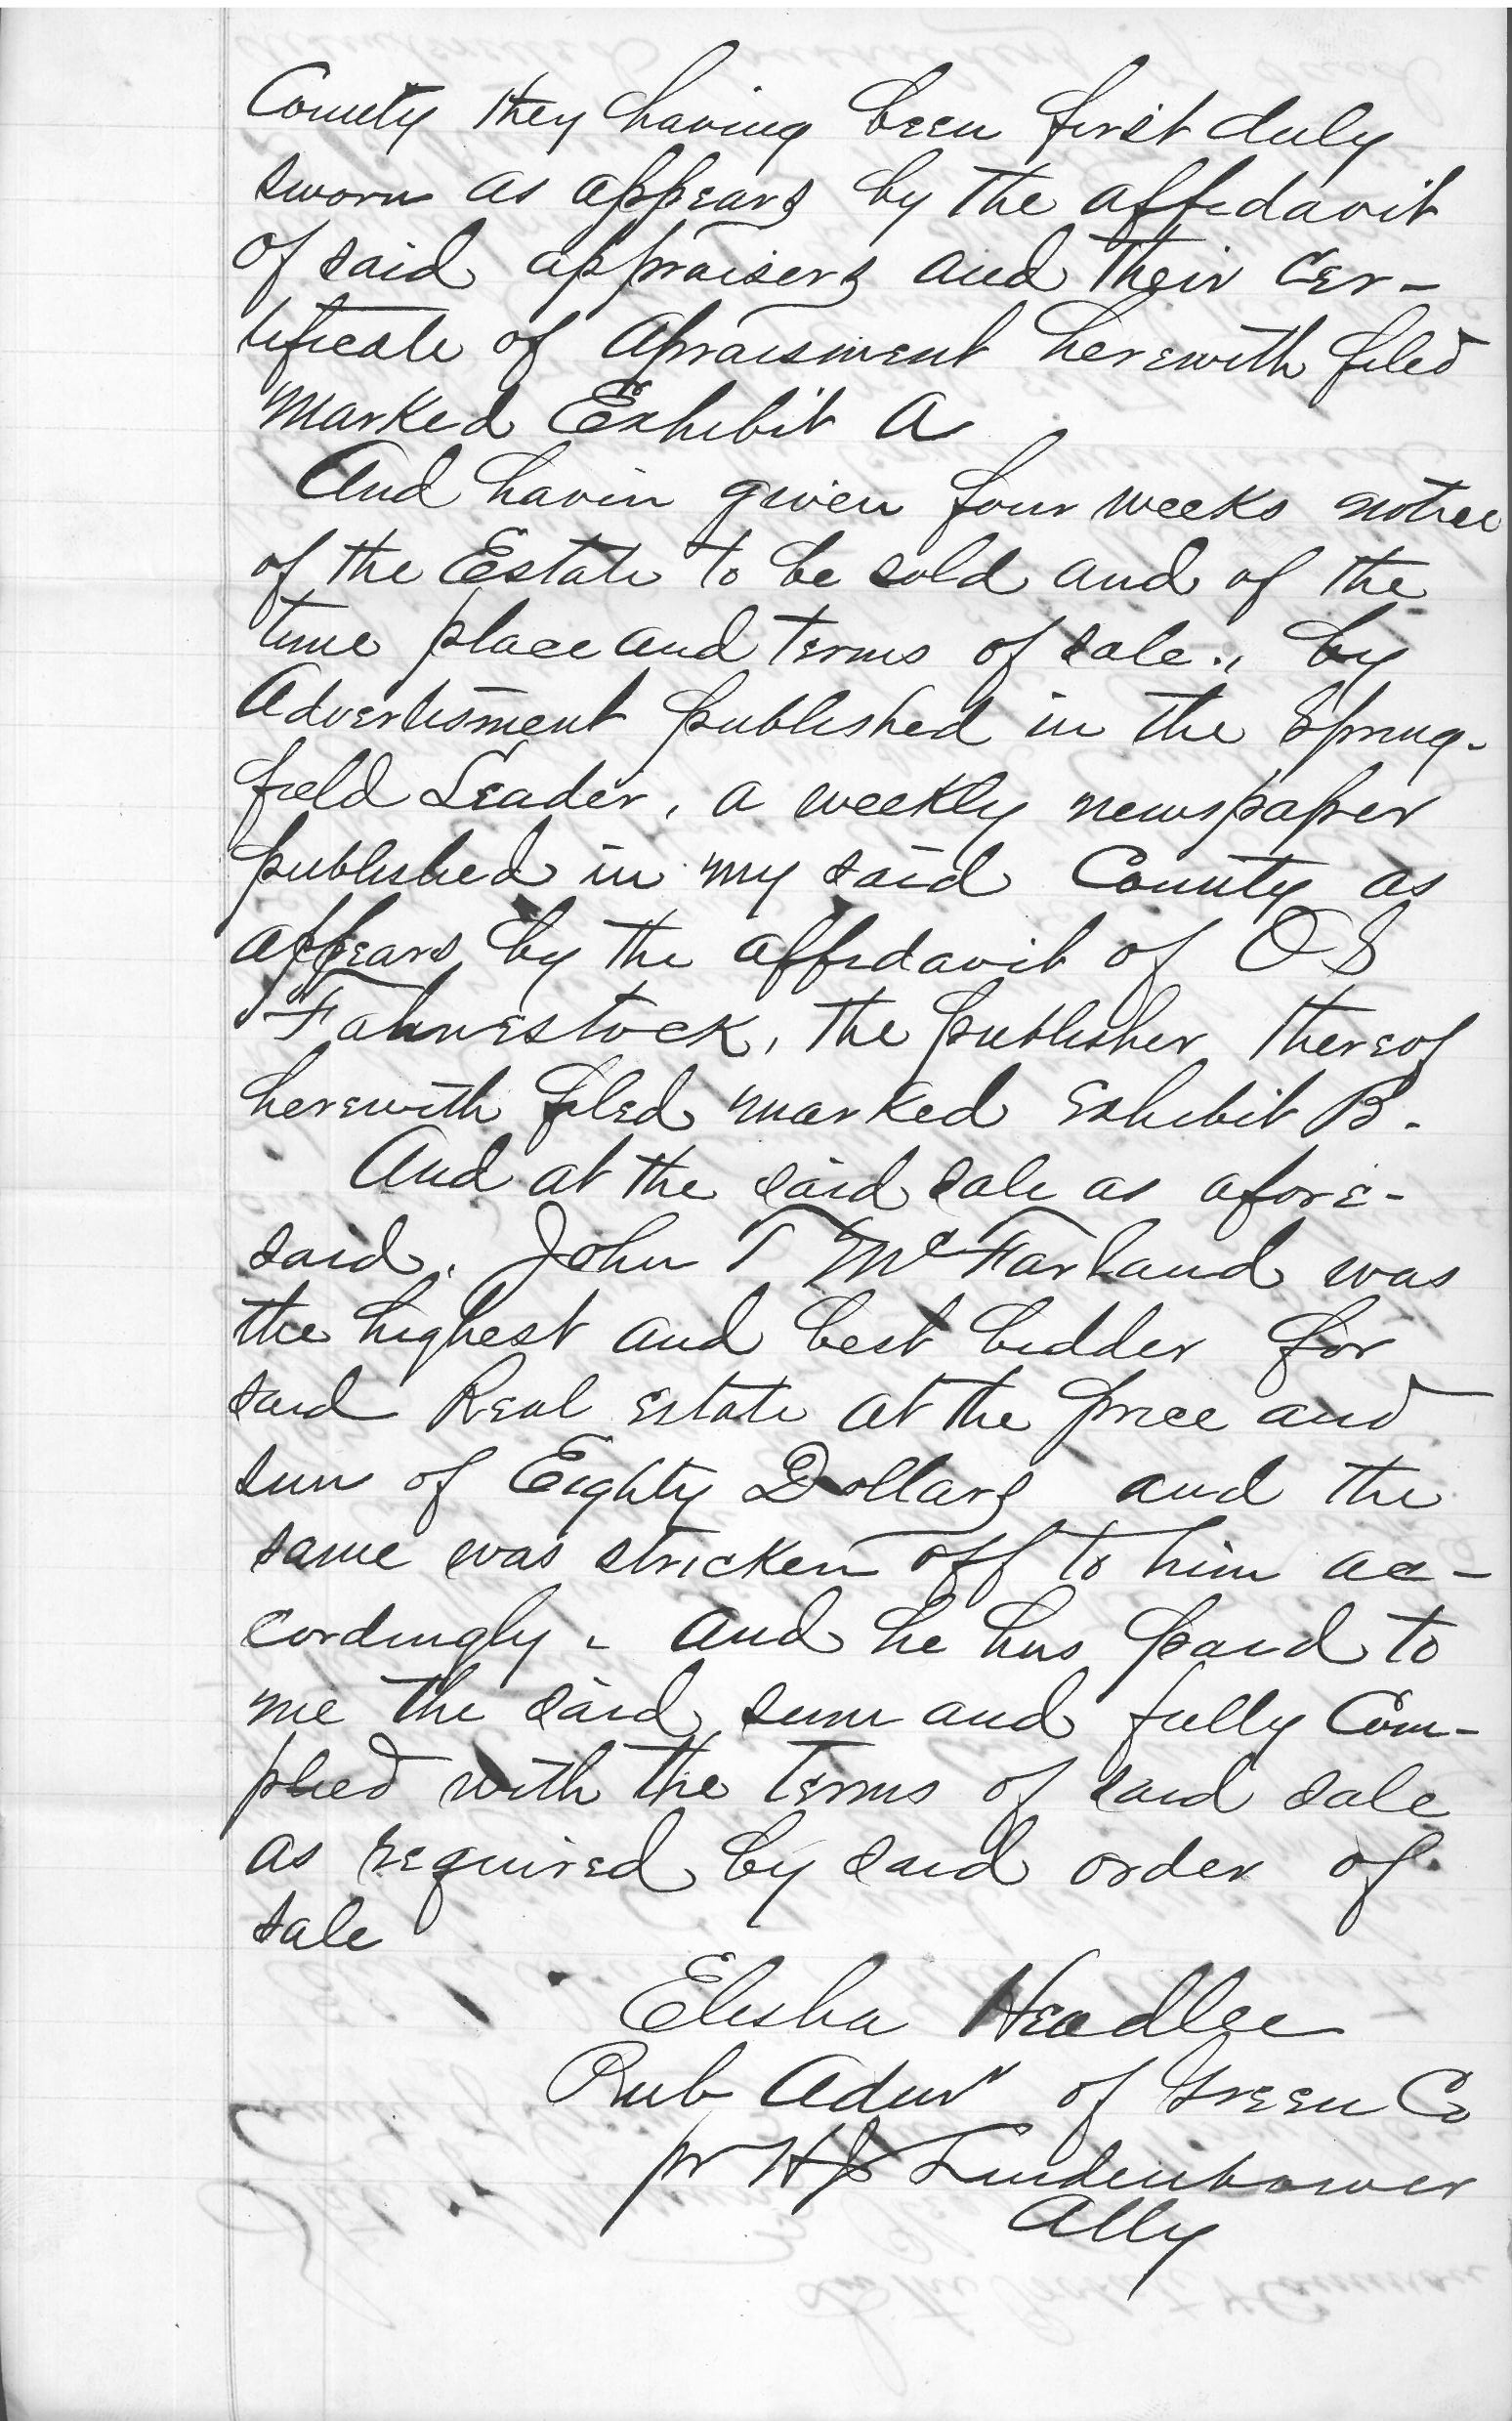 County they having been first duly
sworn as appears by the affidavit
of said appraisers and their cer-
tificate of Apraisment herewith filed
marked Exhibit A
And havin given four weeks notice
of the Estate to be sold and of the
time place and terms of sale., by
Advertisment published in the Spring-
field Leader, a weekly newspaper
published in my said County as
appears by the affidavit of O S
Fahnestock, the publisher thereof
herewith filed marked exhibit B.
And at the said sale as afore-
said. John T McFarland was
the highest and best bidder for
said Real estate at the price and
sum of Eighty Dollars and the
same was stricken off to him ac-
cordingly. and he has paid to
me the said sum and fully Com-
plied with the terms of said sale
as required by said order of
sale
Elisha Headlee
Pub Admr of Green Co
pr H J Lindenbower
Atty